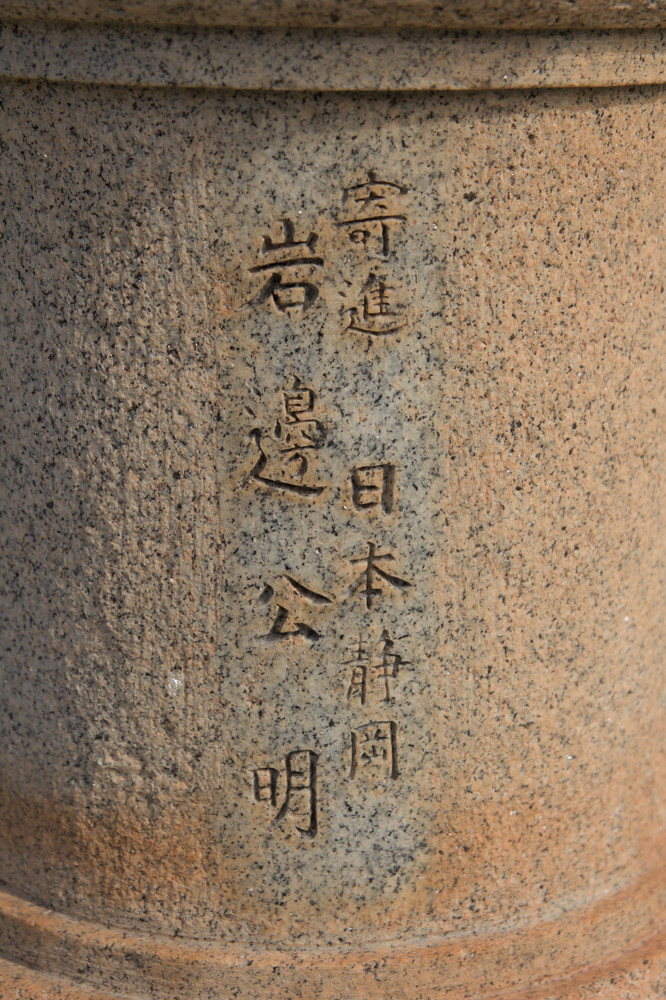 寄進 日本静岡
岩邊公明